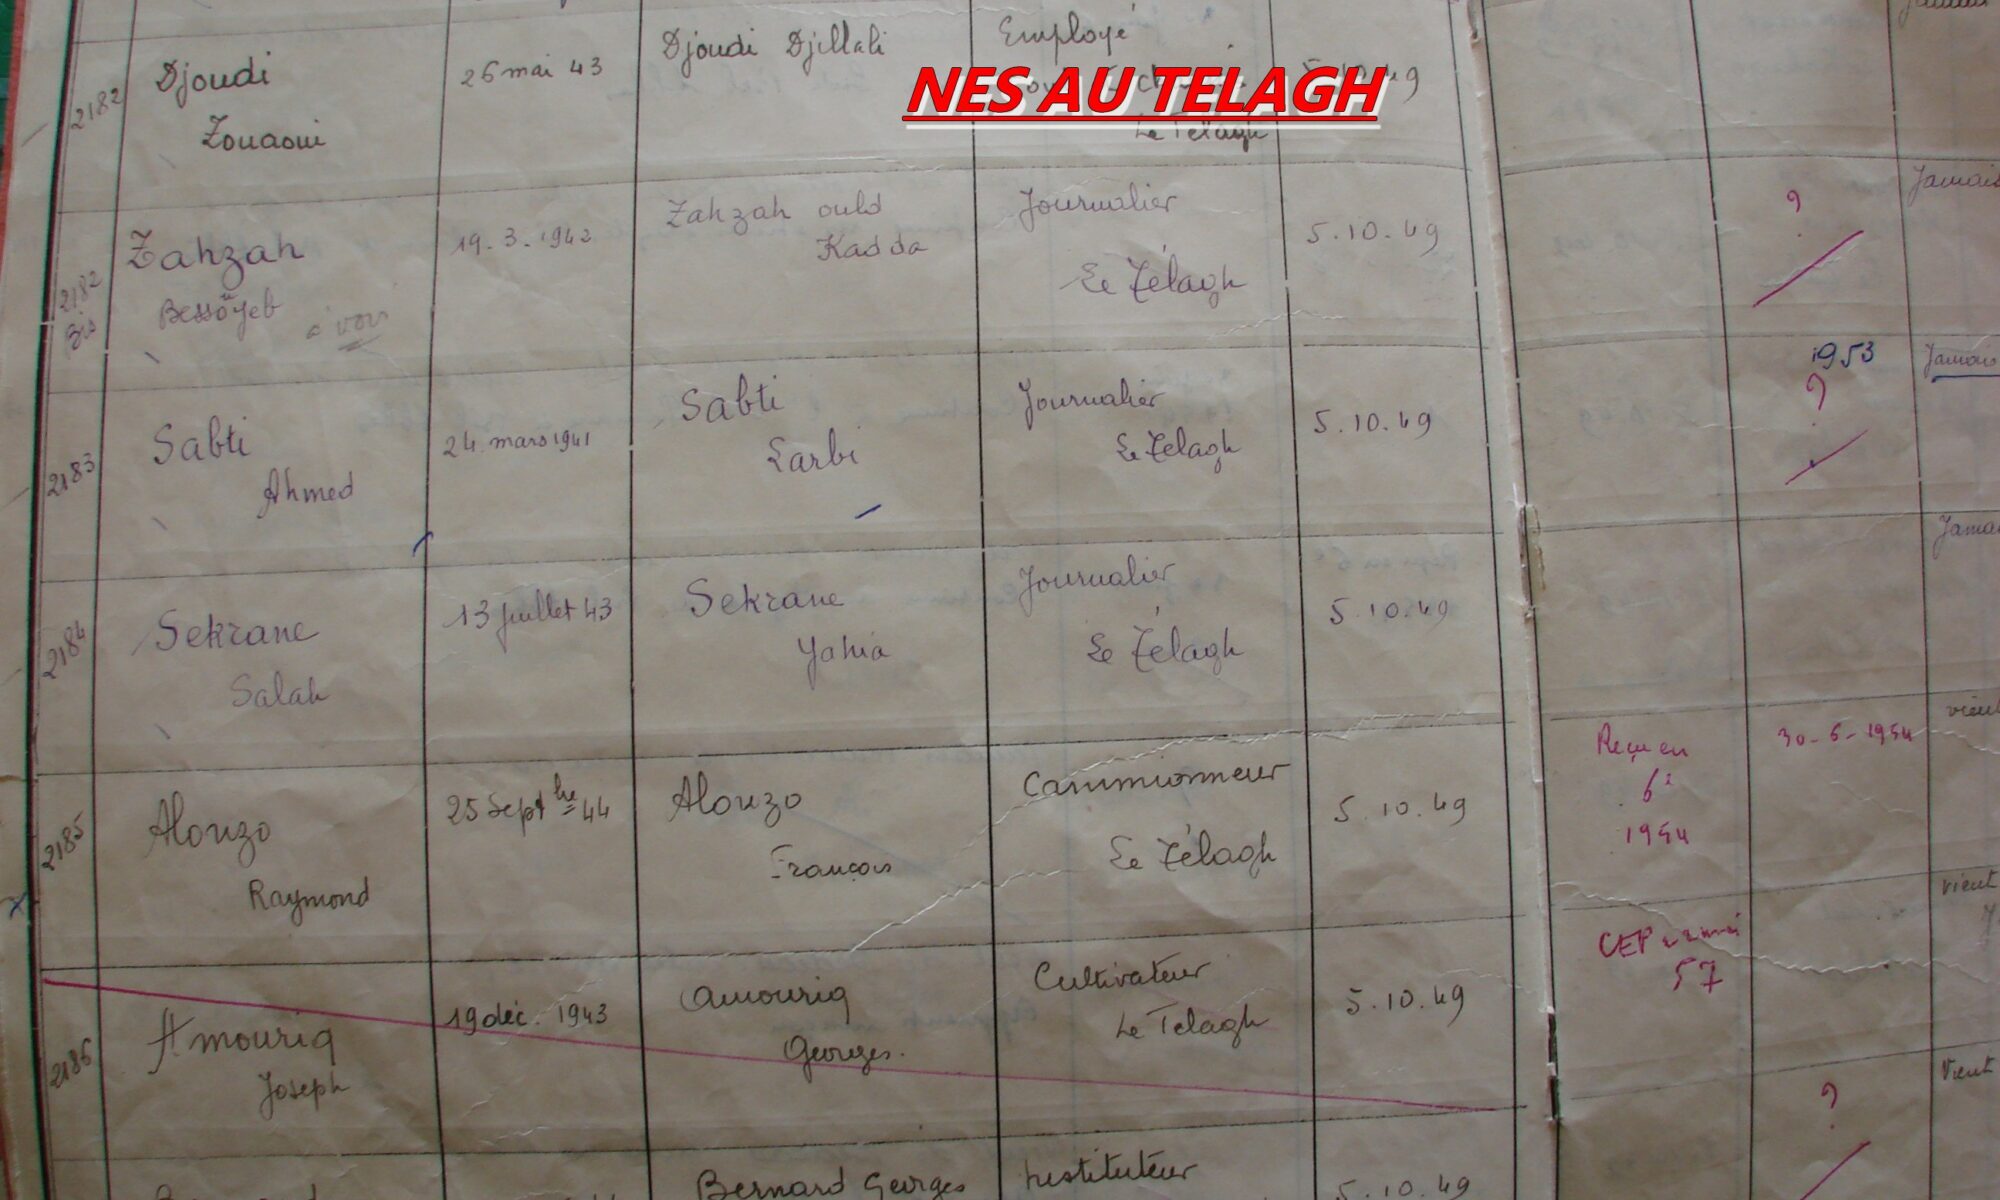 NES AU TELAGH
2182
Djoudi
Zouaoui
26 mai 43
Djoudi Djillali
Employé
Le Télagh
5.10.49
2182
Bis
Zahzah
Bessayeb
à voir
19.3.1942
Zahzah ould
Kadda
Journalier
Le Télagh
5.10.49
?
Jamais
2183
Sabti
Ahmed
24 mars 1941
Sabti
Larbi
Journalier
Le Télagh
5.10.49
1953
?
Jamais
2184
Sekrane
Salah
13 juillet 43
Sekrane
Yahia
Journalier
Le Télagh
5.10.49
Jamai
2185
Alonzo
Raymond
25 Sept bre 44
Alonzo
François
Cammionneur
Le Télagh
5.10.49
Reçu en
6e
1954
30-6-1954
vient
2186
Amouriq
Joseph
19 déc. 1943
Amouriq
Georges.
Cultivateur
Le Telagh
5.10.49
CEP
57
vient
Bernard Georges
Instituteur
5.10.49
?
Vient